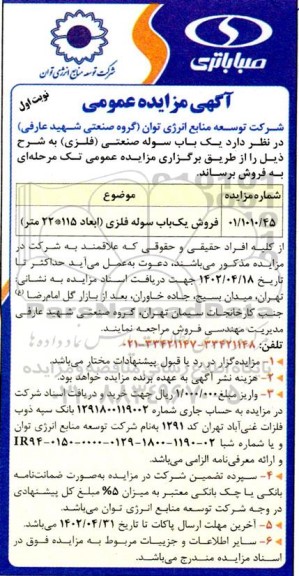 صبا باتری
شرکت توسعه منابع انرژی توان
نوبت اول
آگهی مزایده عمومی
شرکت توسعه منابع انرژی توان (گروه صنعتی شهید عارفی)
در نظر دارد یک باب سوله صنعتی (فلزی) به شرح
ذیل را از طریق برگزاری مزایده عمومی تک مرحله‌ای
به فروش برساند.
شماره مزایده
موضوع
۰۱/۱۰۱۰/۴۵
فروش یک‌باب سوله فلزی (ابعاد ۱۱۵*۲۲ متر)
از کلیه افراد حقیقی و حقوقی که علاقمند به شرکت در
مزایده مذکور می‌باشند، دعوت به‌عمل می‌آید حداکثر تا
تاریخ ۱۴۰۲/۰۴/۱۸ جهت دریافت اسناد مزایده به نشانی:
تهران، میدان بسیج، جاده خاوران، بعد از بازار گل امام‌رضا (ع)
جنب کارخانجات سیمان تهران، گروه صنعتی شهید عارفی
مدیریت مهندسی فروش مراجعه نمایند.
تلفن: ۳۳۴۲۱۱۴۸-۰۲۱-۳۳۴۲۱۱۴۷
۱- مزایده‌گزار در رد یا قبول پیشنهادات مختار می‌باشد.
۲- هزینه نشر آگهی به عهده برنده مزایده خواهد بود.
۳- واریز مبلغ ۱/۰۰۰/۰۰۰ ریال جهت خرید و دریافت اسناد شرکت
در مزایده به حساب جاری شماره ۱۲۹۱۸۰۰۱۱۹۰۰۲ بانک سپه ذوب
فلزات غنی‌آباد تهران کد ۱۲۹۱ به‌نام شرکت توسعه منابع انرژی توان
و یا شماره شبا IR۹۴-۰۱۵۰-۰۰۰۰-۰۱۲۹-۱۸۰۰-۱۱۹۰-۰۲
و ارائه معرفی‌نامه الزامی می‌باشد.
۴- سپرده تضمین شرکت در مزایده به‌صورت ضمانت‌نامه
بانکی یا چک بانکی معتبر به میزان ۵% مبلغ کل پیشنهادی
در وجه شرکت توسعه منابع انرژی توان می‌باشد.
۵- آخرین مهلت ارسال پاکات تا تاریخ ۱۴۰۲/۰۴/۳۱ می‌باشد.
۶- سایر اطلاعات و جزییات مربوط به مزایده فوق در
اسناد مزایده مندرج می‌باشد.